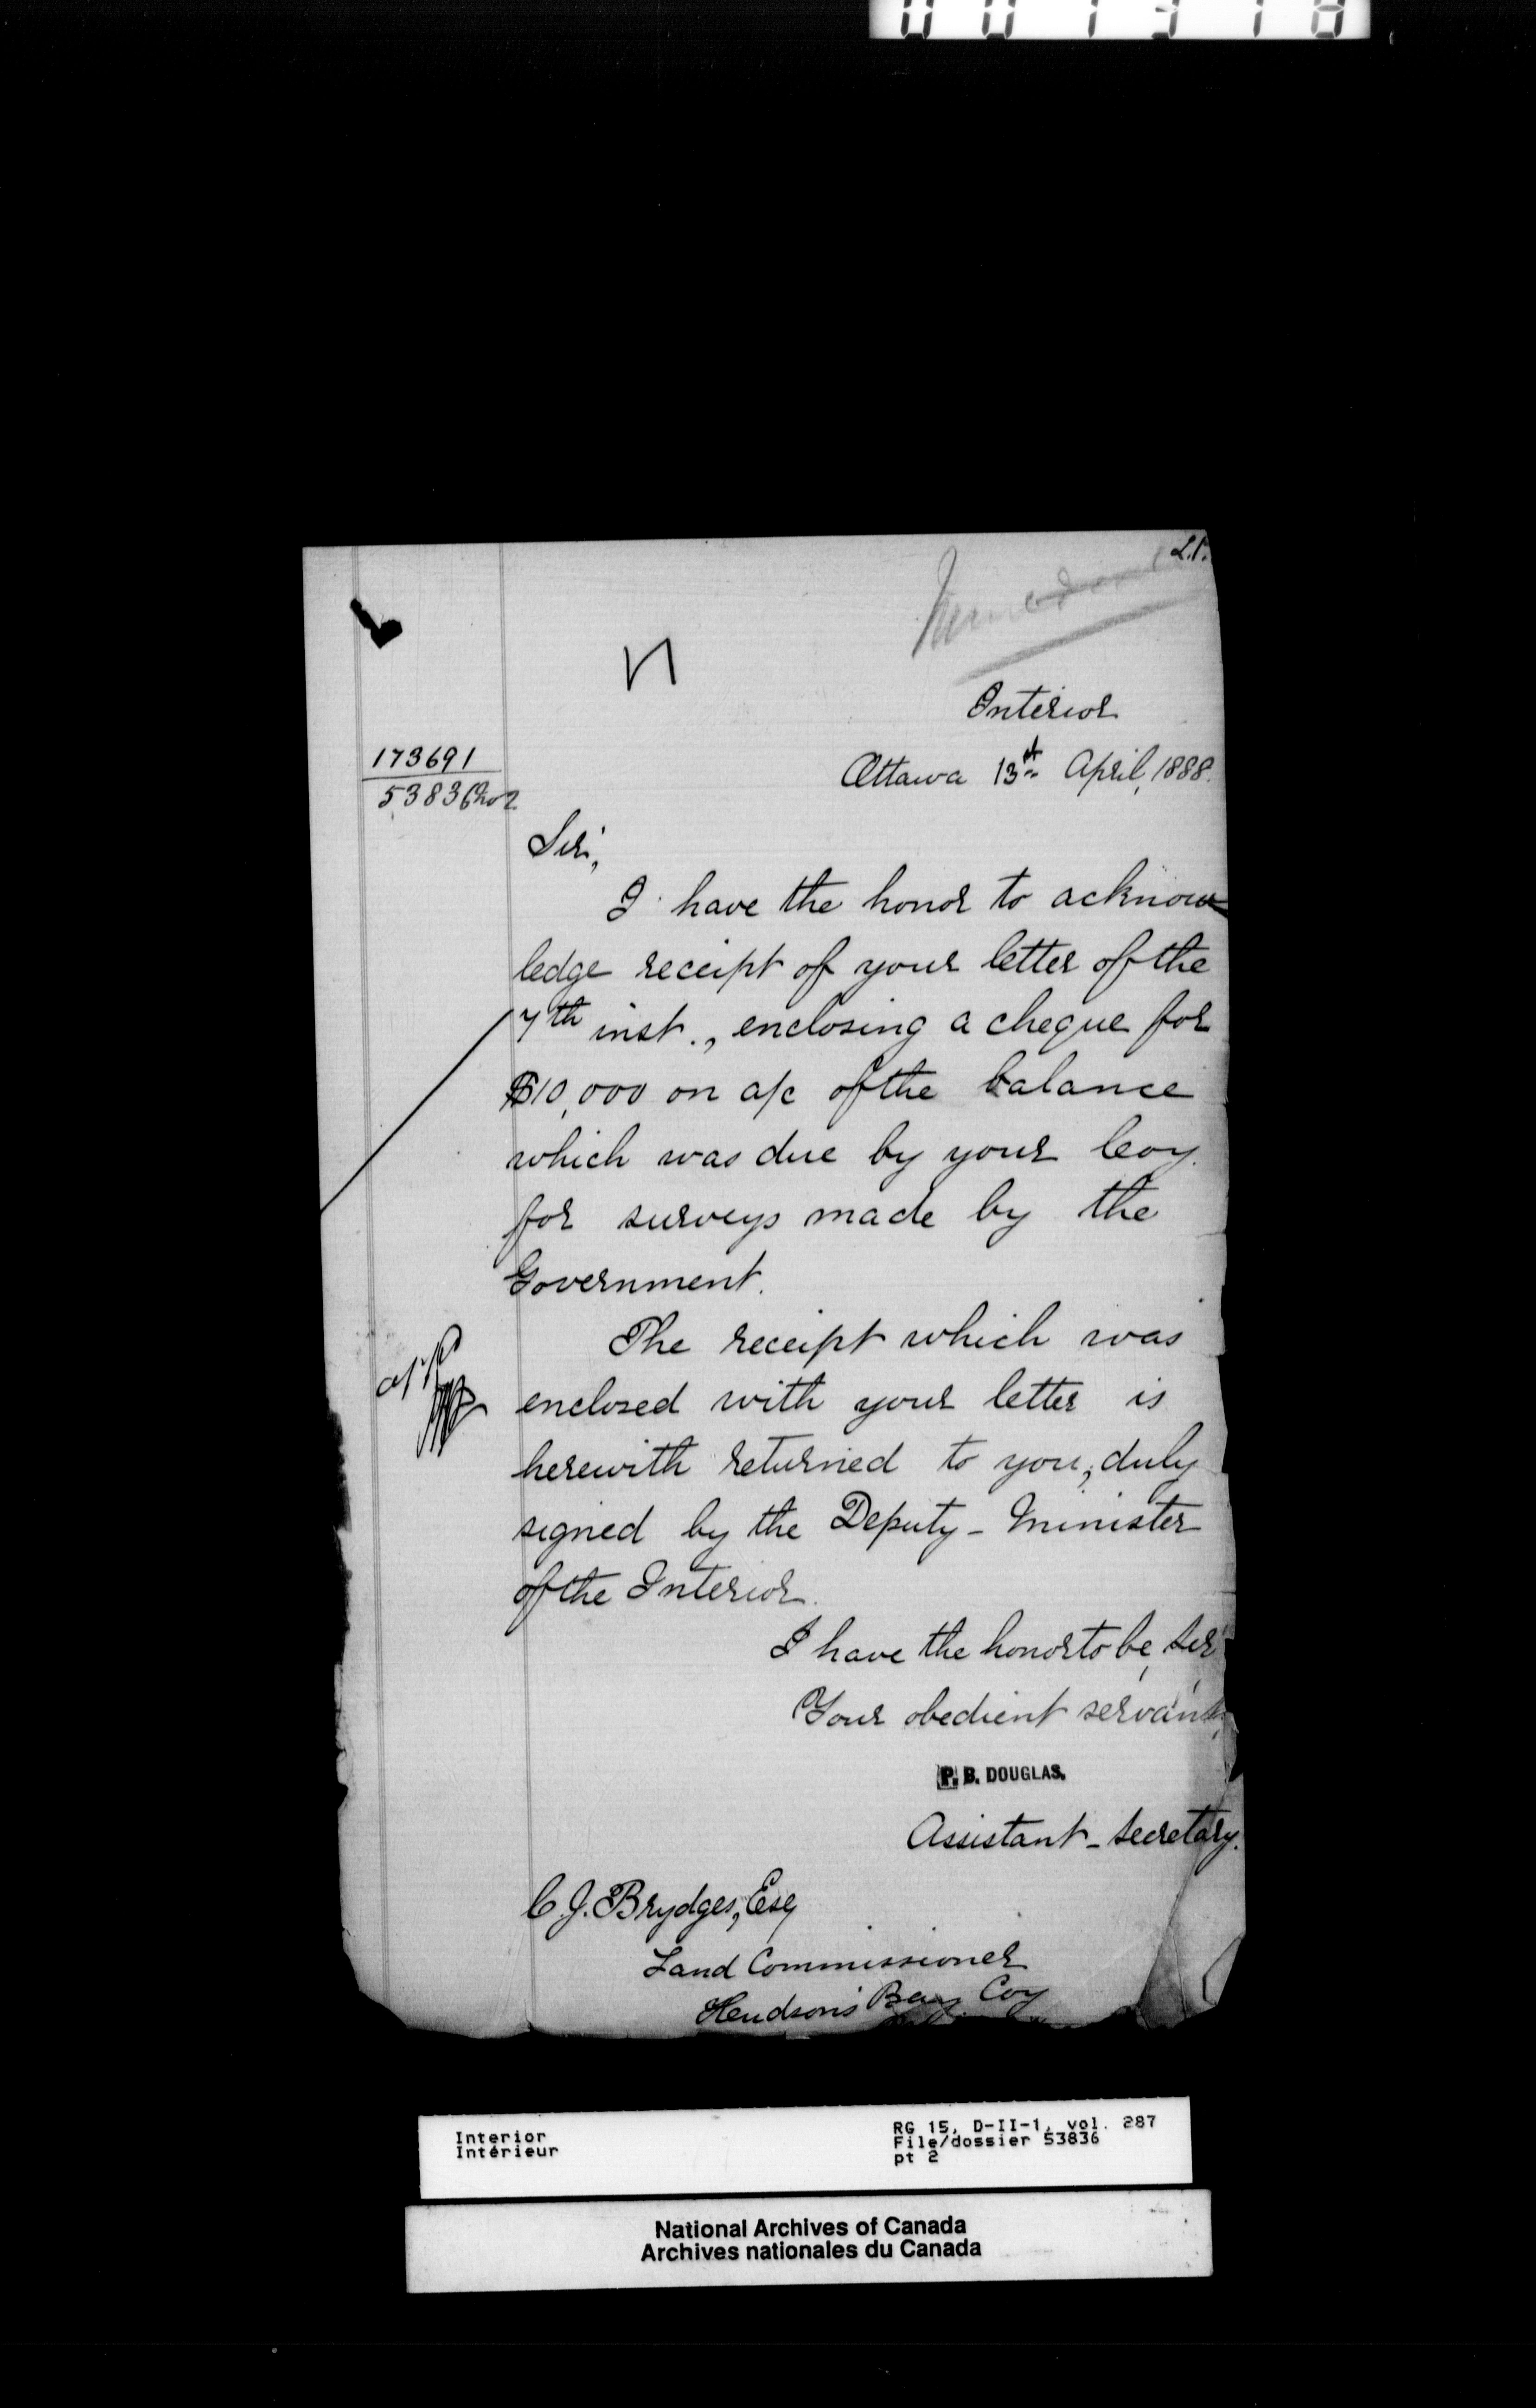 001318
L.P.
Immediate
n
Interior
Ottawa 13th April, 1888.
173691
53836 No 2
Sir,
I have the honor to acknow
ledge receipt of your letter of the
7th inst., enclosing a cheque for
$10,000 on a/c of the balance
which was due by your Coy.
for surveys made by the
Government.
The receipt which was
enclosed with your letter is
herewith returned to you, duly
signed by the Deputy-Minister
of the Interior.
I have the honor to be, Sir
Your obedient servant,
P. B. DOUGLAS.
Assistant-Secretary.
C. J. Brydges, Esq
Land Commissioner
Hudson's Bay Coy
Interior
Intérieur
RG 15, D-II-1, vol. 287
File/dossier 53836
pt 2
National Archives of Canada
Archives nationales du Canada